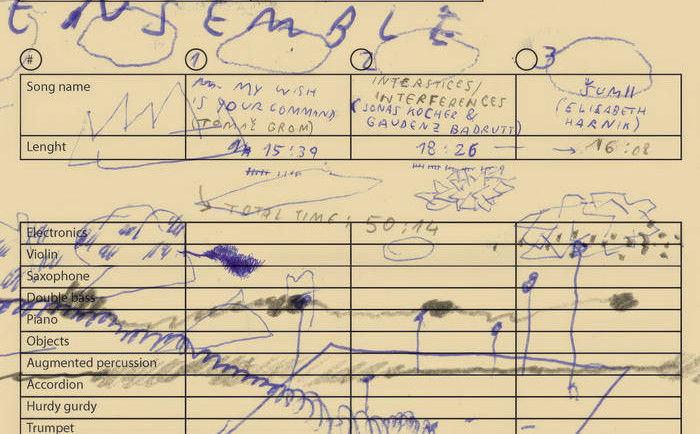 ENSEMBLE
# 1 2 3
Song name
MY WISH
IS YOUR COMMAND
(TOMAŽ GROM)
INTERSTICES/
INTERFERENCES
(JONAS KOCHER &
GAUDENZ BADRUTT)
ŠUM II
(ELISABETH
HARNIK)
Lenght 15:39 18:26 16:08
TOTAL TIME: 50:14
Electronics
Violin
Saxophone
Double bass
Piano
Objects
Augmented percussion
Accordion
Hurdy gurdy
Trumpet